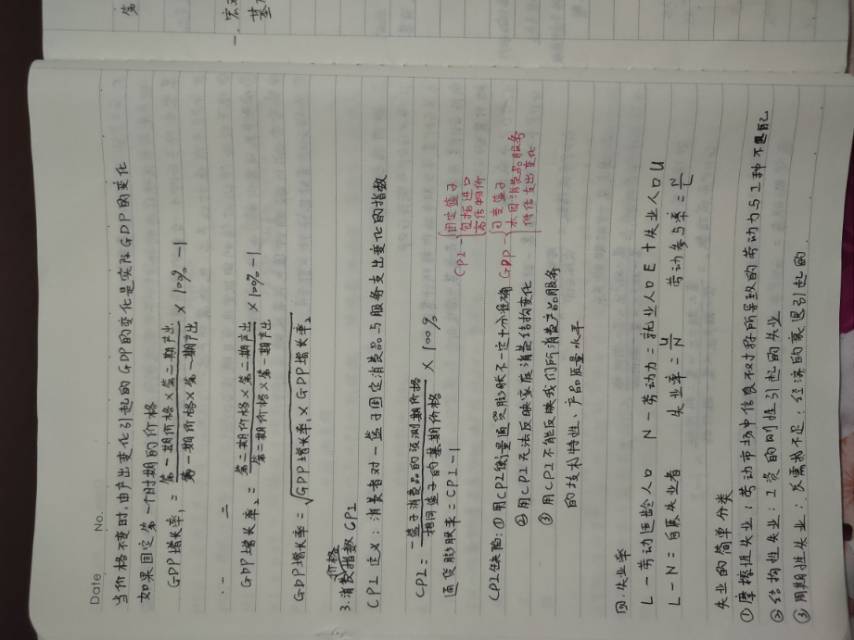 Date No.
当价格不变时,由产出变化引起的GDP的变化是实际GDP的变化
如果固定第一个时期的价格
GDP增长率₁ = 第一期价格×第二期产出 / 第一期价格×第一期产出 × 100% -1
‥ 二
GDP增长率₂ = 第二期价格×第二期产出 / 第二期价格×第一期产出 × 100% -1
GDP增长率 = √GDP增长率₁ × GDP增长率₂
3.消费价格指数CPI
CPI定义:消费者对一篮子固定消费品与服务支出变化的指数
CPI = 一篮子消费品的观测期价格 / 相同篮子的基期价格 × 100%
通货膨胀率 = CPI-1
CPI 固定篮子
包括进口
CPI缺陷:①用CPI衡量通货膨胀不一定十分准确
GDP 可变篮子
本国消费品服务
价值支出变化
②用CPI无法反映家庭消费结构变化
③用CPI不能反映我们所消费产品服务
的技术特性、产品质量水平
四.失业率
L-劳动适龄人口 N-劳动力=就业人口E+失业人口U
L-N=自愿失业者 失业率=U/N 劳动参与率=N/L
失业的简单分类
①摩擦性失业:劳动市场中信息不对称所导致的劳动力与工种不匹配
②结构性失业:工资的刚性引起的失业
③周期性失业:总需求不足:经济的衰退引起的